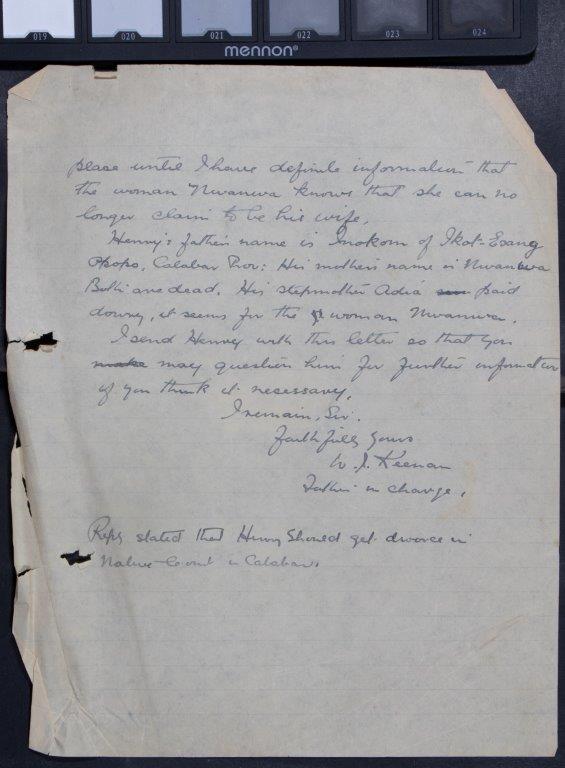 019 020 021 022 023 024
mennon®
please until I have definite information that
the woman Nwanwa knows that she can no
longer claim to be his wife.
Henry's father's name is Inokom of Ikot-Esang
Okopo, Calabar Prov: His mother's name is Nwanwa
Both are dead. His stepmother Adiá paid
dowry, it seems for the woman Nwanwa.
I send Henry with this letter so that you
make may question him for further information
if you think it necessary.
I remain, Sir.
Faithfully Yours
W. J. Keenan
Father in charge.
Reply stated that Henry should get divorce in
Native-Court in Calabar.